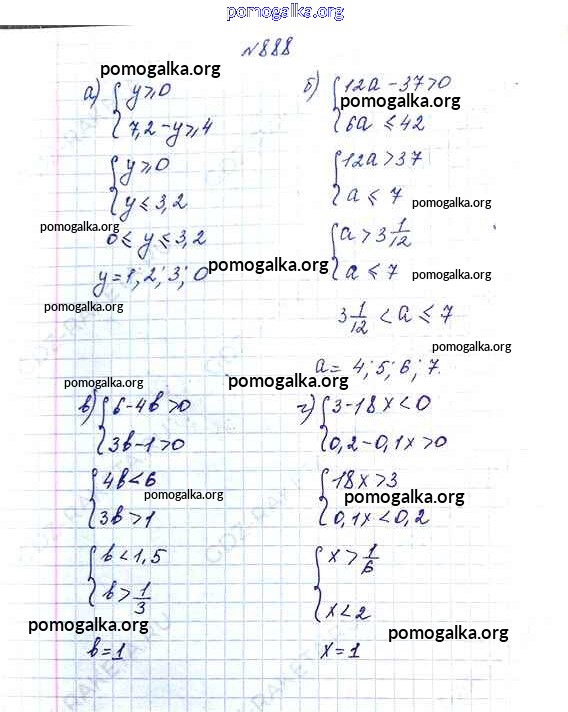 pomogalka.org
№888
pomogalka.org
а) { y ≥ 0
7,2 - y ≥ 4
{ y ≥ 0
y ≤ 3,2
pomogalka.org
0 ≤ y ≤ 3,2
y = 1; 2; 3; 0
pomogalka.org
pomogalka.org
б) { 12a - 37 > 0
pomogalka.org
6a ≤ 42
{ 12a > 37
a ≤ 7
pomogalka.org
{ a > 3 1/12
a ≤ 7
pomogalka.org
3 1/12 < a ≤ 7
pomogalka.org
a = 4; 5; 6; 7.
pomogalka.org
pomogalka.org
в) { 6 - 4b > 0
3b - 1 > 0
{ 4b < 6
pomogalka.org
3b > 1
{ b < 1,5
b > 1/3
pomogalka.org
b = 1
г) { 3 - 18x < 0
0,2 - 0,1x > 0
{ 18x > 3
pomogalka.org
0,1x < 0,2
{ x > 1/6
x < 2
pomogalka.org
x = 1